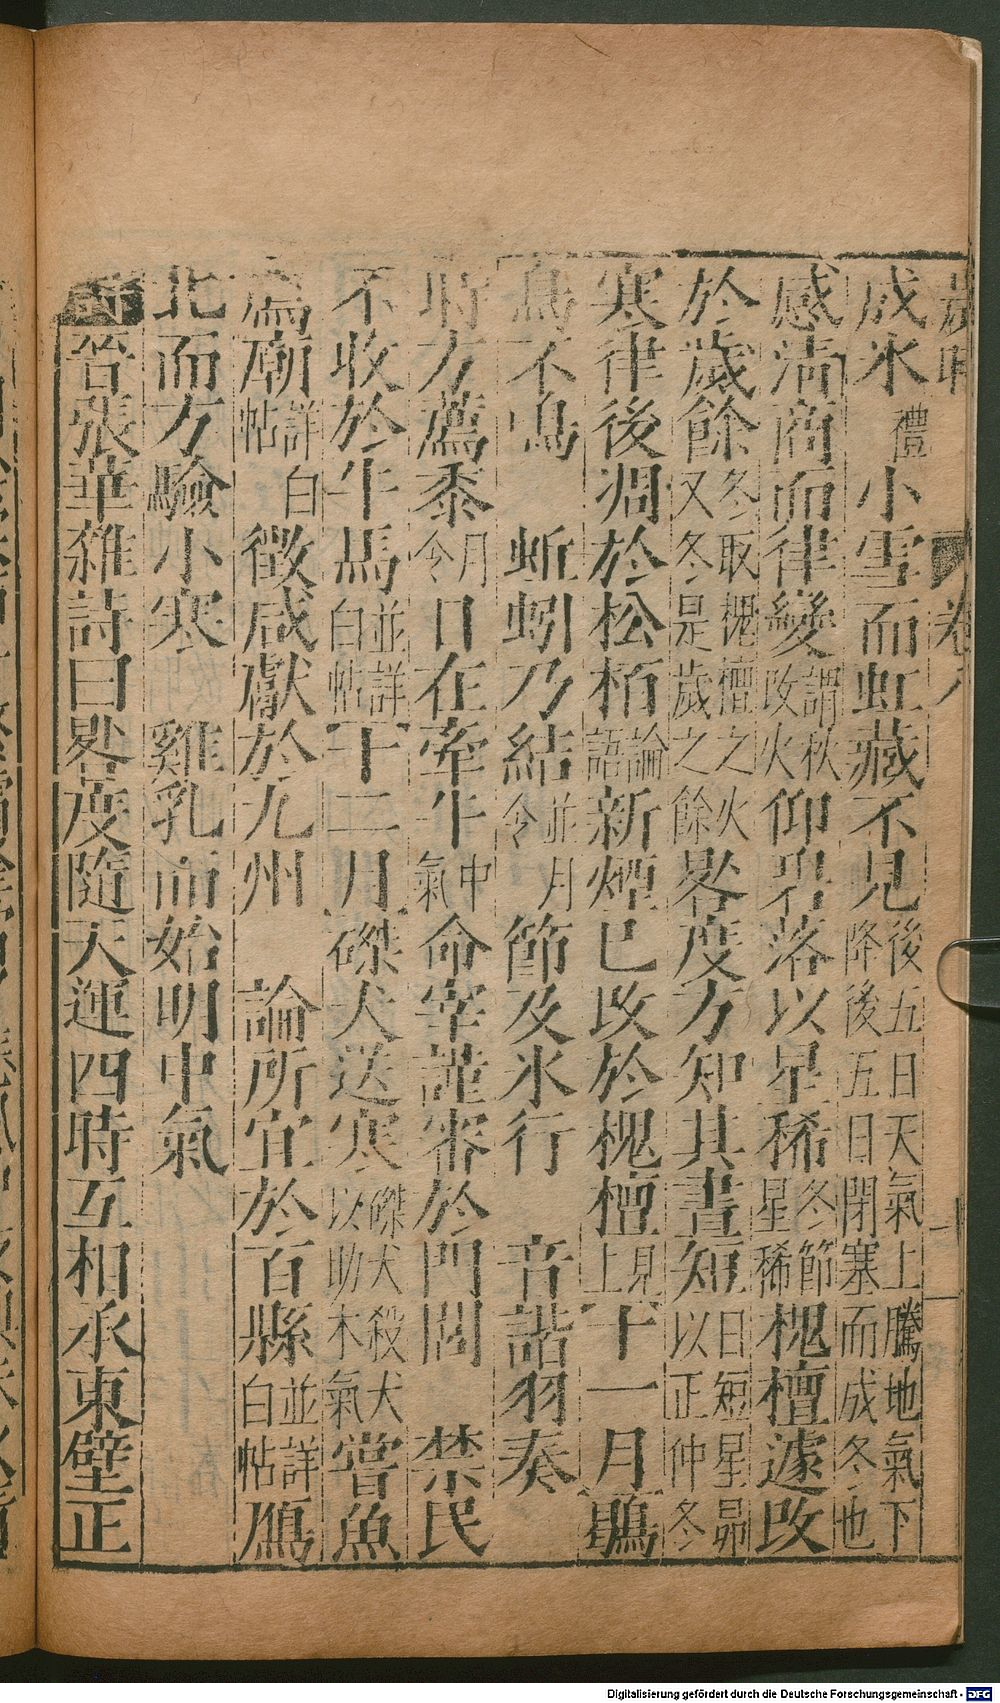 成氷禮小雪而虹藏不見後五日天氣上騰地氣下降後五日閉塞而成冬也
感淸商而律變謂秋改火仰碧落以星稀冬節星稀槐檀遽改
於歲餘冬取槐檀之火又冬是歲之餘晷度方知其晝短日短星昴以正仲冬
寒律後凋於松栢論語新煙已改於槐檀見上十一月鶡
鳥不鳴 蚯蚓乃結並月令節及氷行 音諧羽奏
時方薦黍月令日在牽牛中氣命宰謹審於門閭 禁民
不收於牛馬並詳白帖十二月磔犬送寒磔犬殺犬以助木氣嘗魚
爲廟詳白帖徵咸獻於九州 論所宜於百縣並詳白帖鴈
北而方驗小寒 雞乳而始明中氣
晉張華雜詩曰晷度隨天運四時互相承東壁正
Digitalisierung gefördert durch die Deutsche Forschungsgemeinschaft - DFG